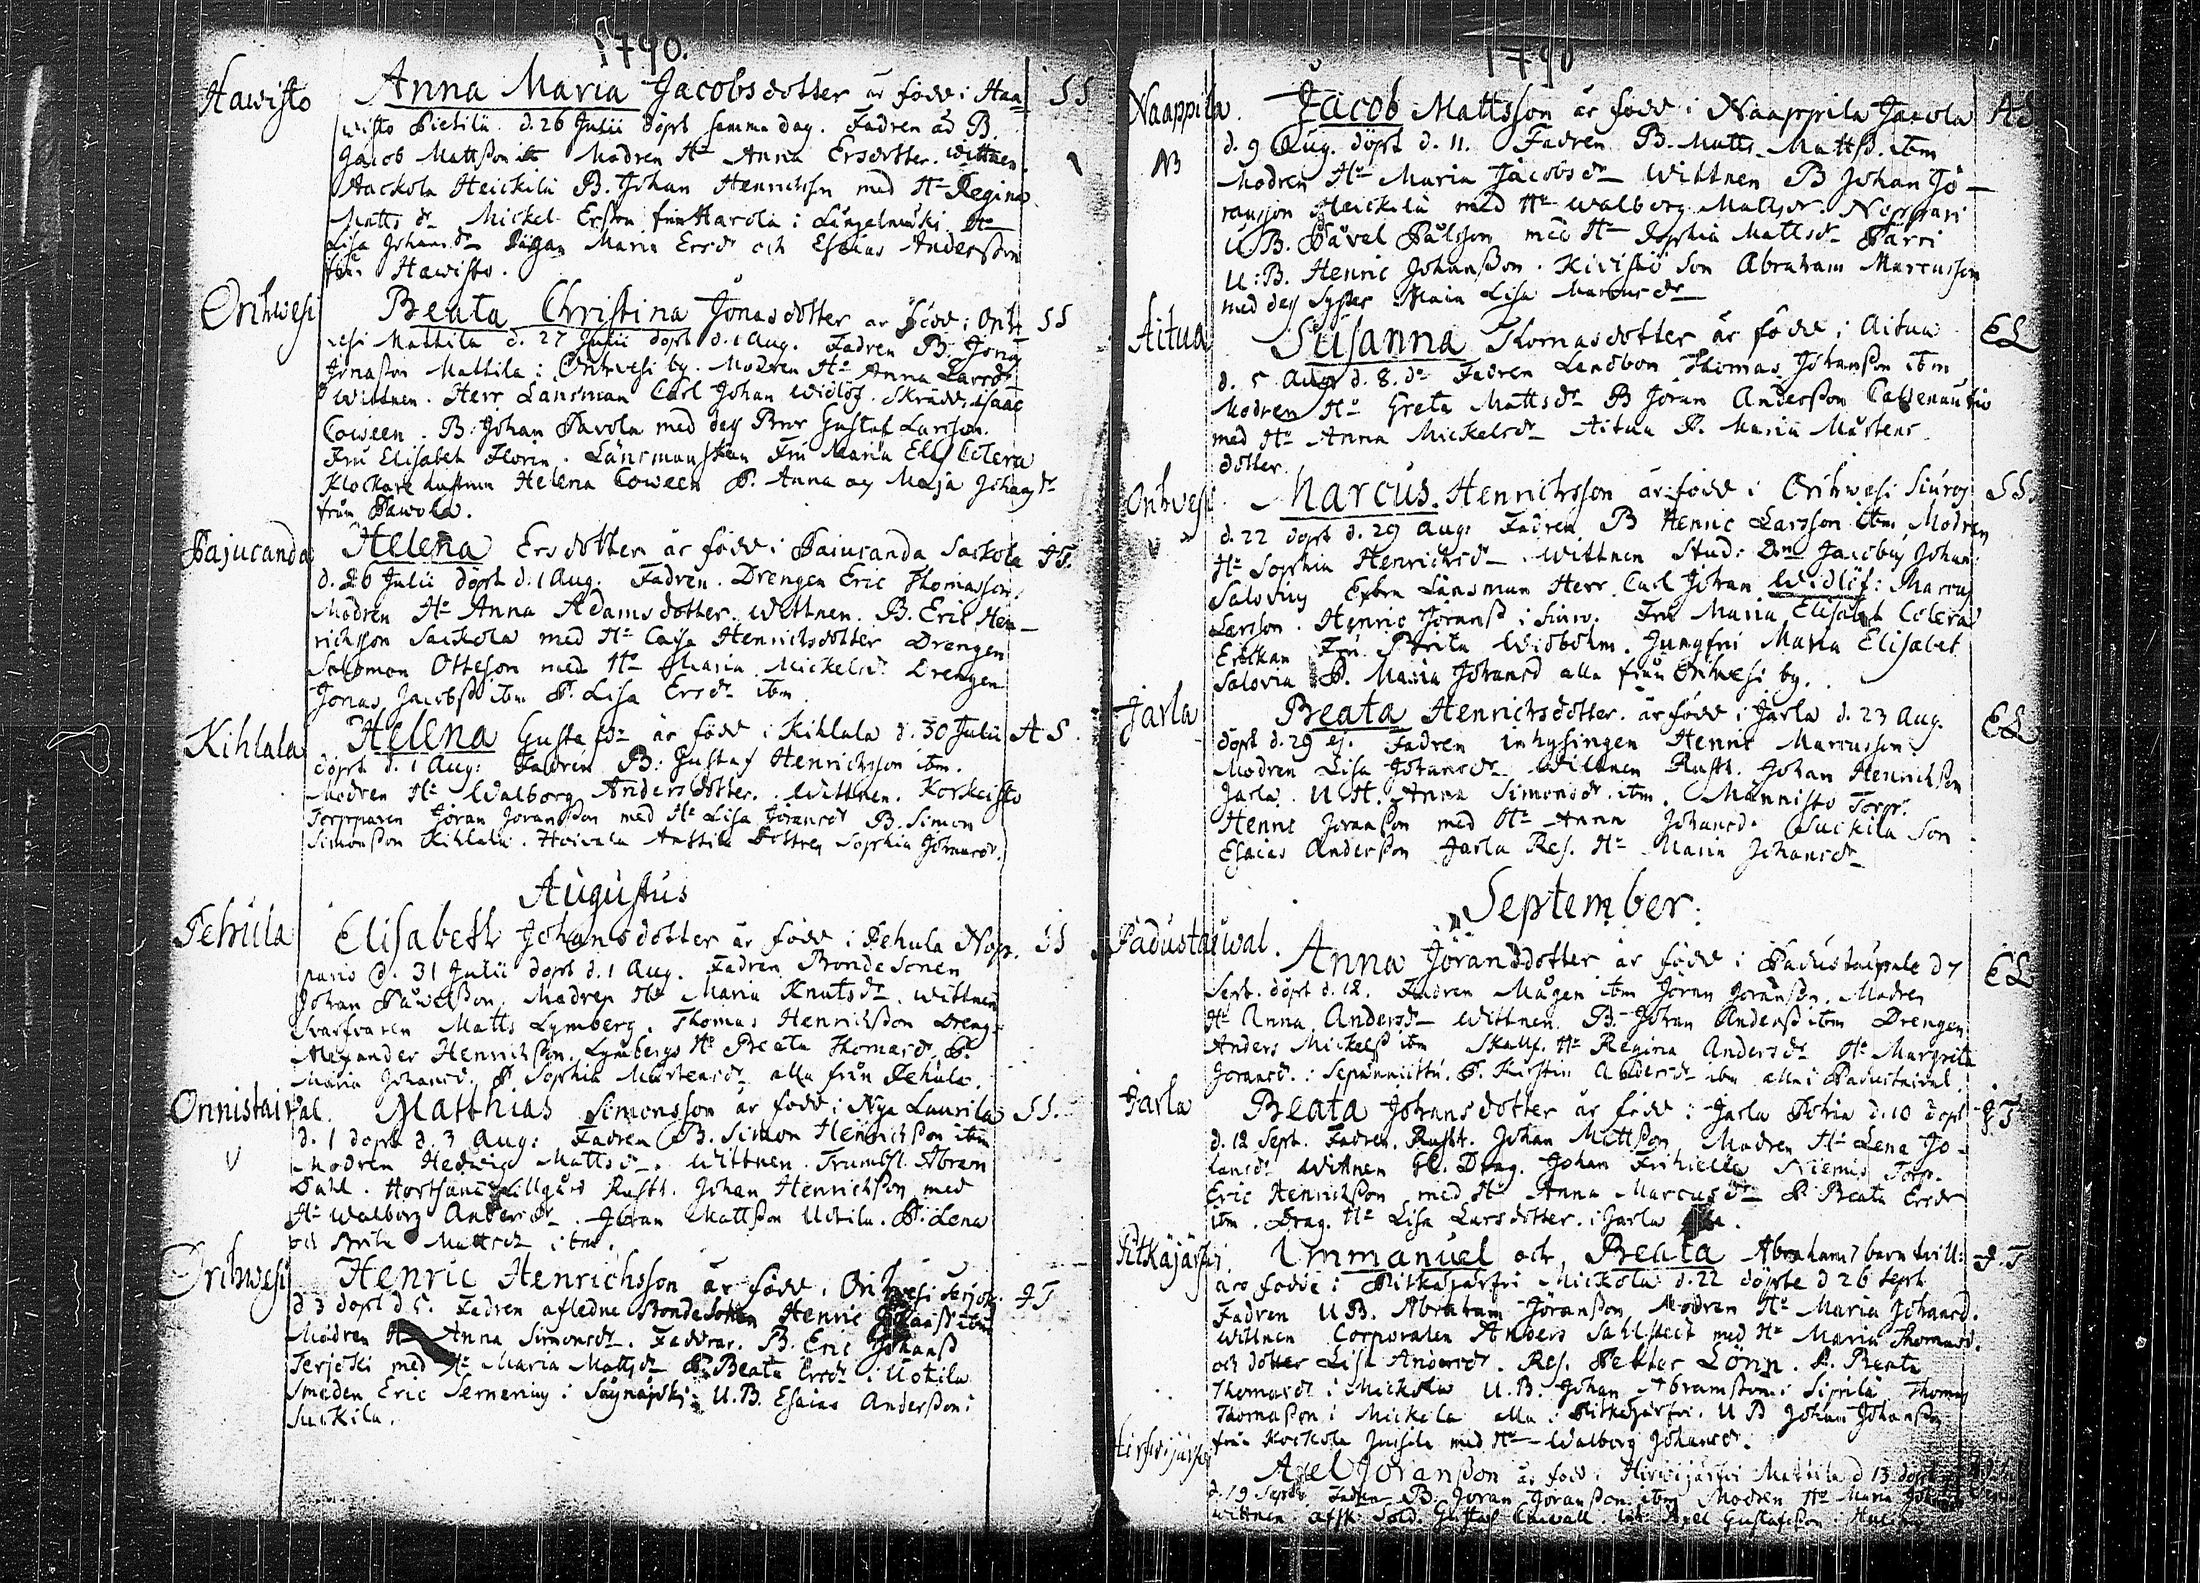 1790.
Hawisto Anna Maria Jacobsdotter är född i Haa- SS
wisto Pietilä d. 26 Julii döpt samma dag. Fadren äd B.
Jacob Mattsson itm Modren Hu Anna Ersdotter. Wittnen.
Heickilä B. Johan Henrichssn med Hu Regina
Matts dr Mickel Ersson från Harola i Längelmäki Hu
Lisa Johans dr Pigan Maria Ersdr och Esaias Andersson
från Hawisto.
Orihwesi Beata Christina Jonasdotter är född i Orih SS
vesi Mattila d. 27 Julii döpt d. 1 Aug. Fadren B. Jonas
Jonasson Mattila i Orihvesi by. Modren Hu Anna Larsdr
Wittnen. Herr Länsman Carl Johan Widlöf. Skrädd. Isaac
Coween. B. Johan Pavola med des Bror Gustaf Larsson.
Fru Elisabet Florin. Länsmanskan Fru Maria Elis. Celera
Klockare hustrun Helena Coween P. Anna og Maja Johansdr
från Pawola.
Pajucanda Helena Ersdotter är född i Paiucanda Sackola JT.
d. 26 Julii döpt d. 1 Aug. Fadren. Drengen Eric Thomasson.
Modren Hu Anna Adamsdotter. Wittnen. B. Eric Hen-
richsson Sackola med Hu Caisa Henrichsdotter Drengen
Salomon Ottesson med Hu Maria Mickelsdr. Drengen
Jonas Jacobss itm P. Lisa Ersdr itm
Kihlala Helena Gustafsdr är född i Kihlala d. 30 Julii A S.
döpt d. 1 Aug: Fadren B: Gustaf Henrichsson itm.
Modren Hu Walborg Andersdotter. Wittnen. Korkeisto
Torpparen Jöran Joransson med Hu Lisa Joransdr B. Simon
Simonsson Kihlala. Anttila Dottren Sophia Johansdr.
Augustus
Pehula Elisabeth Johansdotter är född i Pehula Nop- SS
paris d. 31 Julii döpt d. 1 Aug. Fadren Bondesonen
Johan Påwelsson. Modren Hu Maria Knutsdr. Wittnen
Matts Lymberg. Thomas Henrichsson Dreng:
Alexander Henrichsson. Lymbergs Hu Beata Thomasdr. P.
Maria Johansd. P. Sophia Mårtensdr alla från Pehula.
Onnistaival. Matthias Simonsson är född i Nya Laurila SS.
d. 1 döpt d. 3 Aug: Fadren B. Simon Henrichsson itm
Modren Hedwig Mattsdr. Wittnen. Trumbsl. Abram
Dahl. Lillgård Rustt. Johan Henrichsson med
Hu Walborg Andersdr. Jöran Mattsson Uotila. P. Lena
och Brita Mattsdr itm.
Orihwesi Henric Henrichsson är född i Orihwesi Serjok. JT
d 3 döpt d 5. Fadren afledne Bondesonen Henric itm
Modren Hu Anna Simonsdr. Faddrar. B. Eric Johanss
Terjoki med Hu Maria Mattsdr P. Beata Ersdr i Uotila
Smeden Eric Sernerius i Säynäjoki: U.B. Esaias Andersson i
Suckila.
1790
Naappila. Jacob Mattsson är född i Naappila Jaavola AS
d. 9 Aug. döpt d. 11. Fadren B. Matts Mattss. itm
NB Modren Hu Maria Jacobsdr Wittnen B Johan Jö-
ransson Heickilä med Hu Walborg Mattsdr. Noppari
U.B. Påvel Pålsson med Hu Sophia Mattsdr Pärri
U:B. Henric Johansson. Kivistö Son Abraham Marcusson
med des Syster Maia Lisa Marcusdr
Aitua Susanna Thomasdotter är född i Aitua EL
d. 5 Aug d. 8. do Fadren Landbon Thomas Johansson itm
Modren Hu Greta Mattsdr B Jöran Andersson
med Hu Anna Mickelsdr Aitua P. Maria Mårtens
dotter.
Orihvesi Marcus. Henrichsson är född i Orihwesi Siuros SS.
d. 22 döpt d. 29 Aug: Fadren B Henric Larsson itm Modren
Hu Sophia Henrichsdr. Wittnen Stud: Dn Jacobus Johan:
Salovius Extra Länsman Herr Carl Johan Widlöf: Marcus
Larsson. Henric Jöranss i Siuro. Fru Maria Elisabet Celera
Enkan Fru Brita Widbohm. Jungfru Maria Elisabet
Salovia P. Maria Johansd alla från Orihwesi by.
Jarla Beata Henrichsdotter är född i Jarla d. 23 Aug. EL
döpt d. 29 ej. Fadren inhysingen Henric Marcusson
Modren Lisa Johansdr Wittnen Rustt. Johan Henrichsson
Jarla. U.H. Anna Simonsdr itm. Mannisto Torpr.
Henric Joransson med Hu Anna Johansd. Suckila Son
Esaias Andersson Jarla Res. Hu Maria Johansdr
September.
Padustaiwal. Anna Jöransdotter är född i Padustaipale d 7 EL
Sept. döpt d. 12. Fadren Mågen itm Jöran Joransson. Modren
Hu Anna Andersdr Wittnen. B. Johan Anderss itm Drengen
Anders Mickelss itm Skallf. Hu Regina Andersdr Hu Margreta
Joransd. i P. Kirstin itm alla i Padustaival.
Jarla Beata Johansdotter är född i Jarla d. 10 döpt JT
d. 12 Sept. Fadren. Rustt. Johan Mattsson Modren Hu Lena Jo-
hansdr Wittnen Gl. Drag. Johan Niemis Torp.
Eric Henrichsson med Hu Anna Marcusdr P. Beata Ersdr
itm. Drag. Hu Lisa Larsdotter i Jarla
Pitkäjärfvi Immanuel och Beata Abrahams barn tvill: J.T
äro födde i Pitkäjärfvi Mickola d. 22 döpte d 26 Sept.
Fadren U B. Abraham Jöransson Modren Hu Maria Johansd.
Wittnen Corporalen Anders Sahlstedt med Hu Maria Thomasd.
och dotter Lisa Andersdr. Res. Petter Lönn. P. Beata
Thomasdr i Mickola U.B. Johan Abramsson i Sipilä Thomas
Thomasson i Mickola alla i Pitkäjärfvi. U B Johan Johansson
från Kockola Jussila med Hu Walborg Johansdr.
Hirfvijärfvi Axel Joransson är född i Hirvijärfvi Mattila d 13 döpt
d. 19 Septbr Fadren B. Joran Joransson itm Modren Hu Maria
Wittnen. afsk. Sold. Gustaf Axel Gustafsson